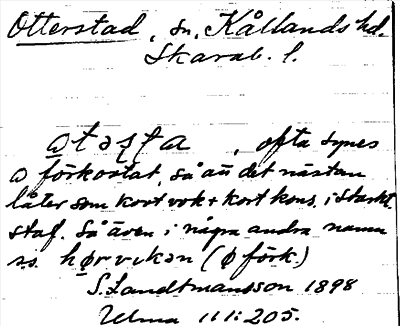 Otterstad, sn, Kållands hd.
Skarab. l.
ofta synes
a förkortat, så att det nästan
låter som kort vok + kort kons. i starkt.
staf. Så även i några andra namn
s.s. hørvikən (ø förk.)
S. Landtmansson 1898
Ulma 111:205.